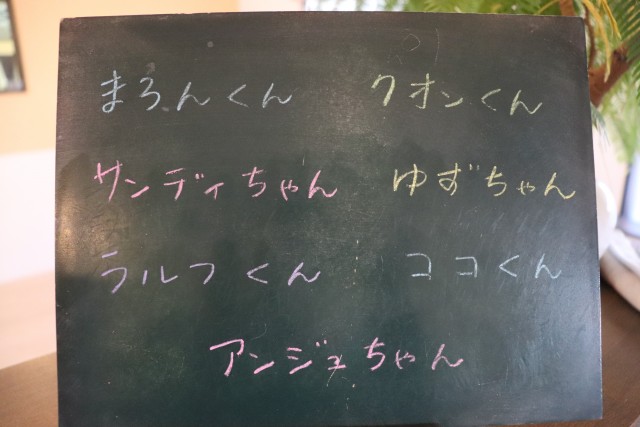 まろんくん クオンくん
サンディちゃん ゆずちゃん
ラルフくん ココくん
アンジュちゃん